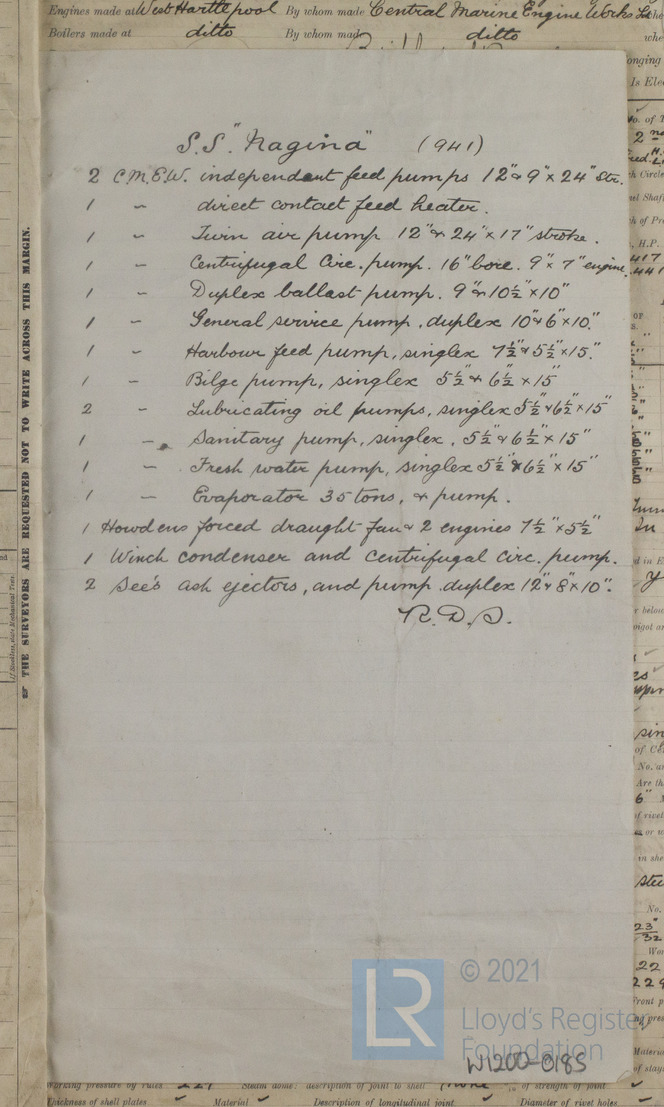 Engines made at West Hartlepool By whom made Central Marine Engine Works
Boilers made at ditto By whom made ditto
THE SURVEYORS ARE REQUESTED NOT TO WRITE ACROSS THIS MARGIN.
S.S. "Nagina" (941)
2 C.M.E.W. independent feed pumps 12" & 9" x 24" Str.
1 – direct contact feed heater.
1 – Twin air pump 12" & 24" x 17" stroke.
1 – Centrifugal Circ. pump. 16" bore. 9" x 7" engine.
1 – Duplex ballast pump. 9" & 10½" x 10"
1 – General service pump, duplex 10" & 6" x 10".
1 – Harbour feed pump, singlex 7½" & 5½" x 15".
1 – Bilge pump, singlex 5½" & 6½" x 15"
2 – Lubricating oil pumps, singlex 5½" & 6½" x 15"
1 – Sanitary pump, singlex. 5½" & 6½" x 15"
1 – Fresh water pump, singlex 5½" & 6½" x 15"
1 – Evaporator 35 tons, & pump.
1 Howdens forced draught fan & 2 engines 7½" x 5½"
1 Winch condenser and centrifugal circ. pump.
2 See's ash ejectors, and pump duplex 12" & 8" x 10".
R.D.S.
LR © 2021
Lloyd's Register
Foundation
W1200-0185
Working pressure by rules 221 Steam dome: description of joint to shell none of strength of joint
Thickness of shell plates Material Description of longitudinal joint Diameter of rivet holes